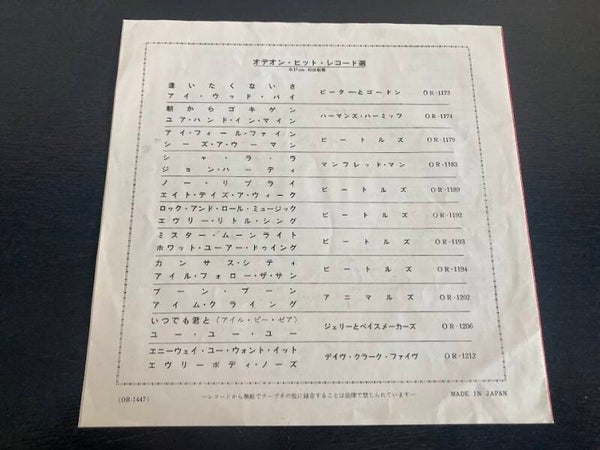 オデオン・ヒット・レコード選
逢いたくないさ
アイ・ウッド・バイ
ピーターとゴードン OR-1173
朝からゴキゲン
ユア・ハンド・イン・マイン
ハーマンズ・ハーミッツ OR-1174
アイ・フィール・ファイン
シーズ・ア・ウーマン
ビートルズ OR-1179
シャ・ラ・ラ
ジョン・ハーディ
マンフレッド・マン OR-1183
ノー・リプライ
エイト・デイズ・ア・ウィーク
ビートルズ OR-1189
ロック・アンド・ロール・ミュージック
エヴリー・リトル・シング
ビートルズ OR-1192
ミスター・ムーンライト
ホワット・ユーアー・ドゥイング
ビートルズ OR-1193
カンサス・シティ
アイル・フォロー・ザ・サン
ビートルズ OR-1194
ブーン・ブーン
アイム・クライング
アニマルズ OR-1202
いつでも君と(アイル・ビー・ゼア)
ユー・ユー・ユー
ジェリーとペイスメーカーズ OR-1206
エニーウェイ・ユー・ウォント・イット
エヴリーボディ・ノーズ
デイヴ・クラーク・ファイヴ OR-1212
(OR-1447)
−レコードから無断でテープその他に録音することは法律で禁じられています−
MADE IN JAPAN